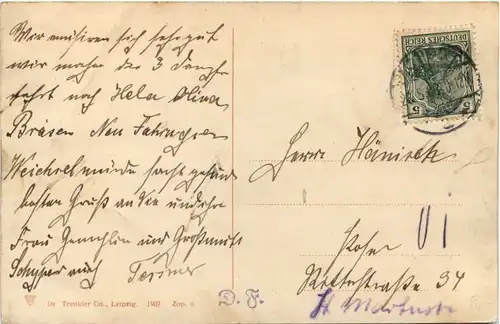 Wir amüsieren sich sehr gut
wir machen die 3 Dampfer
fahrt nach Hela Oliva,
Brösen Neu Fahrwasser
Weichselmünde
besten Gruß an Sie und ihre
Frau Gemahlin und Großmutter
DEUTSCHES REICH
5 5
Herrn Hänisch
Posen
Ritterstraße 34
St. Martinstr
Dr. Trenkler Co., Leipzig. 1907 Zop. 6
D. F.